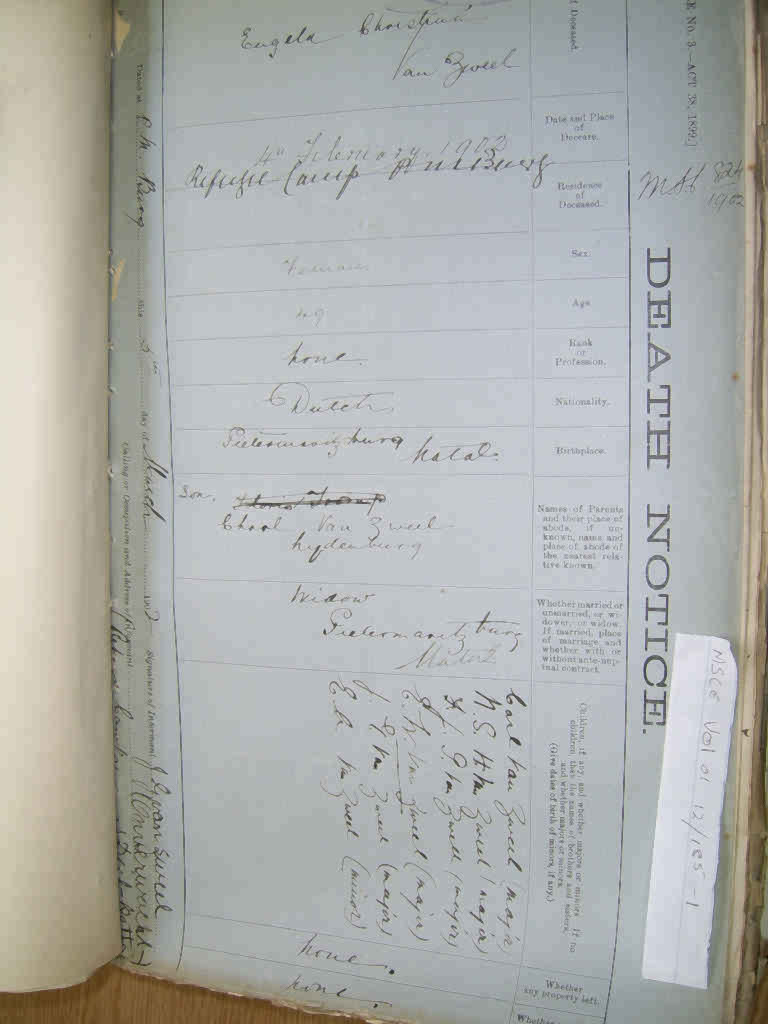 E No. 3.—ACT 38, 1899.]
MSC 824/1902
DEATH NOTICE.
NSC6 Vol 01 12/185-1
f Deceased.
Engela Christina
Van Zweel
Date and Place of Decease.
4th February. 1902
Residence of Deceased.
Refugee Camp PMBurg
Sex.
Female
Age
49
Rank or Profession.
None.
Nationality.
Dutch.
Birthplace.
Pietermaritzburg Natal.
Names of Parents and their place of abode, if unknown, name and place of abode of the nearest relative known.
Son.
Charl Van Zweel
Lydenburg
Whether married or unmarried, or widower, or widow. If married, place of marriage and whether with or without ante-nuptual contract.
Widow
Pietermaritzburg
Natal
Children, if any, and whether majors or minors. If no children, then the names of brothers and sisters, and whether majors or minors. (Give dates of birth of minors, if any.)
Carl Van Zweel (major)
N. S. H. Van Zweel (major)
Van Zweel (major)
Van Zweel (major)
Van Zweel (major)
Van Zweel (minor)
Whether any property left.
none.
Whether
none.
Dated at P. M. Burg this 5th day of March 1902
Signature of Informant
Calling or Occupation and Address of Informant